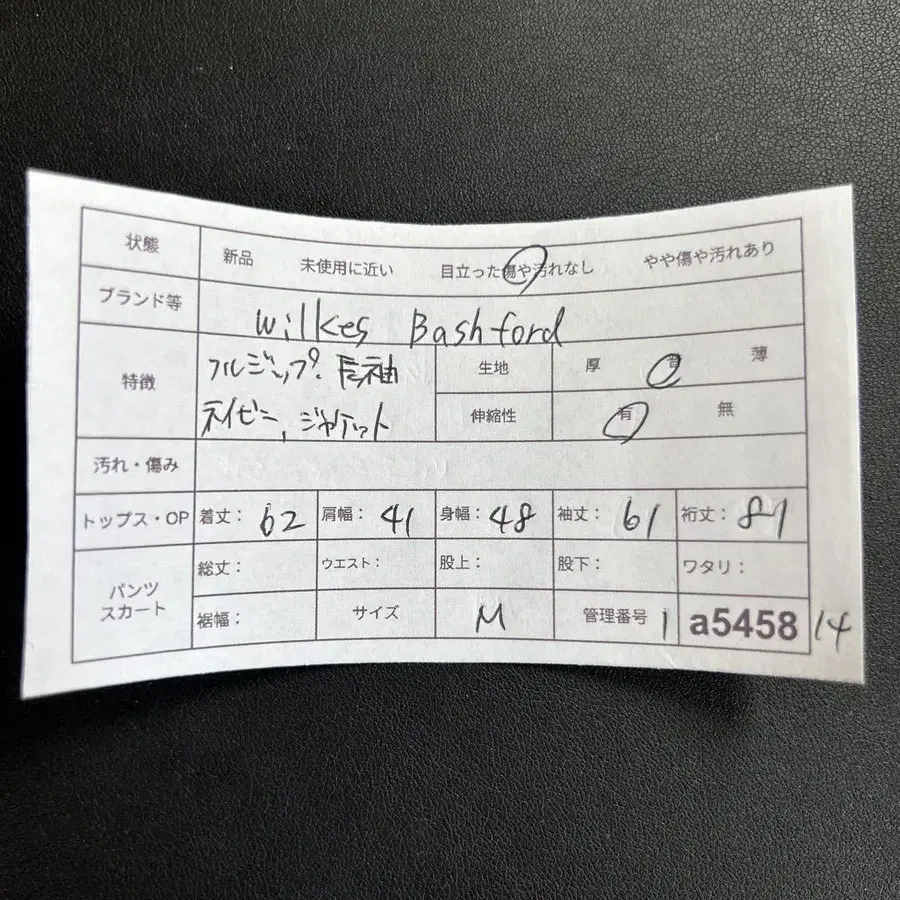 状態 新品 未使用に近い 目立った傷や汚れなし やや傷や汚れあり
ブランド等 Wilkes Bashford
特徴 フルジップ. 長袖 生地 厚 薄
ネイビー, ジャケット 伸縮性 有 無
汚れ・傷み
トップス・OP 着丈: 62 肩幅: 41 身幅: 48 袖丈: 61 裄丈: 81
パンツ 総丈: ウエスト: 股上: 股下: ワタリ:
スカート 裾幅: サイズ M 管理番号 1 a5458 14